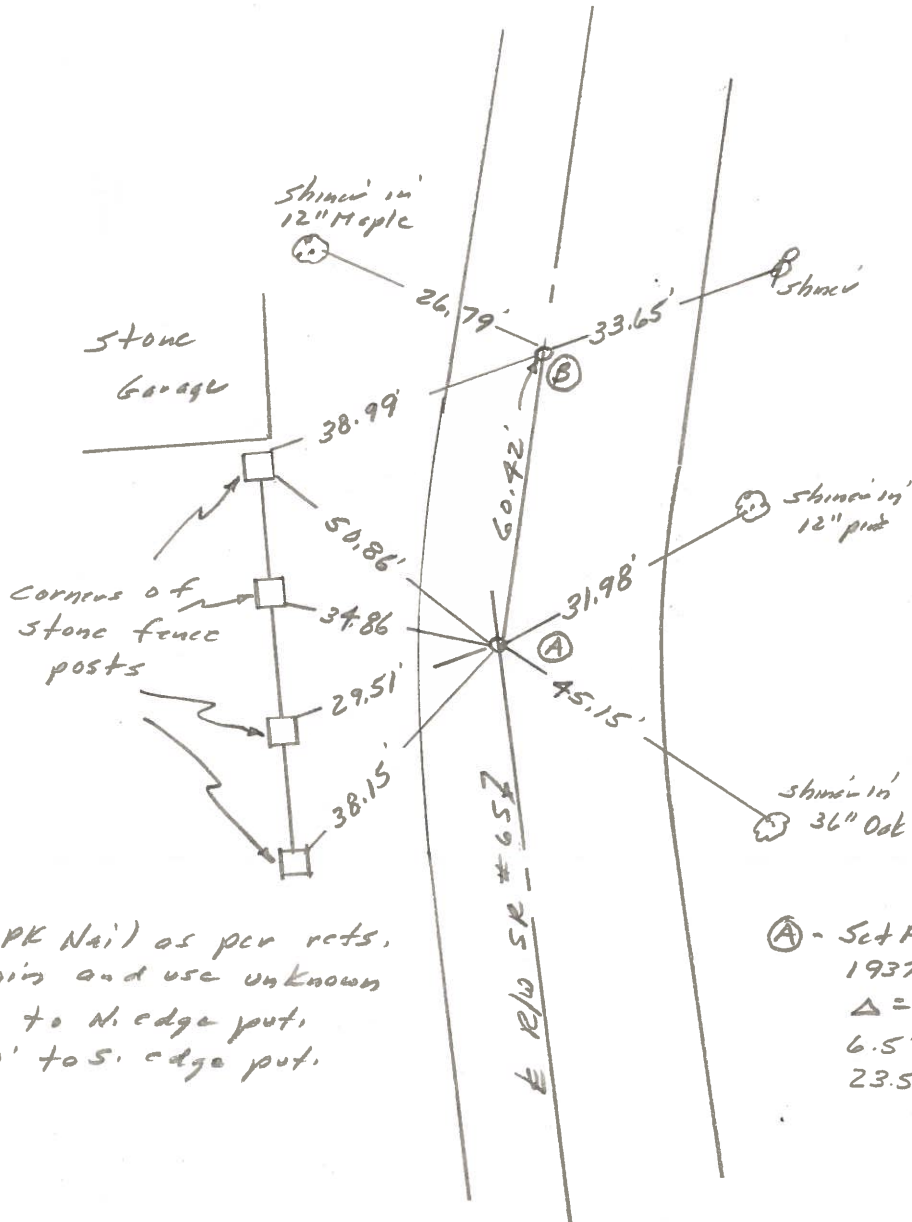 Shiner in
12" Maple
26.79'
33.65'
shiner
Stone
Garage
B
38.99'
60.42'
shiner in
12" pine
50.86'
31.98'
corners of
stone fence
posts
34.86
A
29.51'
45.15'
38.15'
shiner in
36" Oak
℄ R/W SR # 657
PK Nail) as per refs.
and use unknown
to N. edge pvt.
' to S. edge pvt.
A - Set
1937
Δ =
6.5
23.5